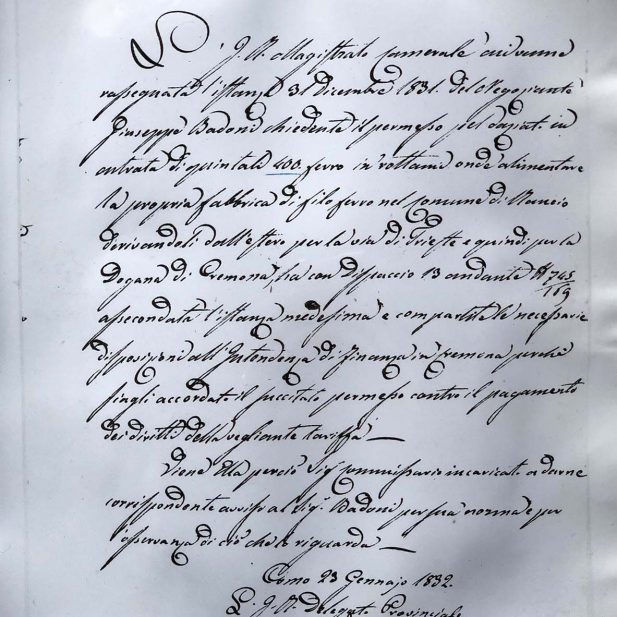 L' I. R. Magistrato Camerale cui venne
rassegnata l'istanza 31 Dicembre 1831. del Negoziante
Giuseppe Badoni chiedente il permesso pel dazio in
entrata di quintali 400 ferro in rottami onde alimentare
la propria fabbrica di filo ferro nel comune di Rancio
derivandoli dall'estero per la via di Trieste e quindi per la
Dogana di Cremona, ha con Dispaccio 13 andante N° 745/119
assecondata l'istanza medesima e compartite le necessarie
disposizioni all'Intendenza di finanza in Cremona perchè
siagli accordato il succitato permesso contro il pagamento
dei diritti della vegliante tariffa —
Viene Ella perciò Sig. Commissario incaricato a darne
corrispondente avviso al Sig. Badoni per sua norma e per
osservanza di ciò che lo riguarda —
Como 23 Gennajo 1832.
L' I. R. Delegato Provinciale